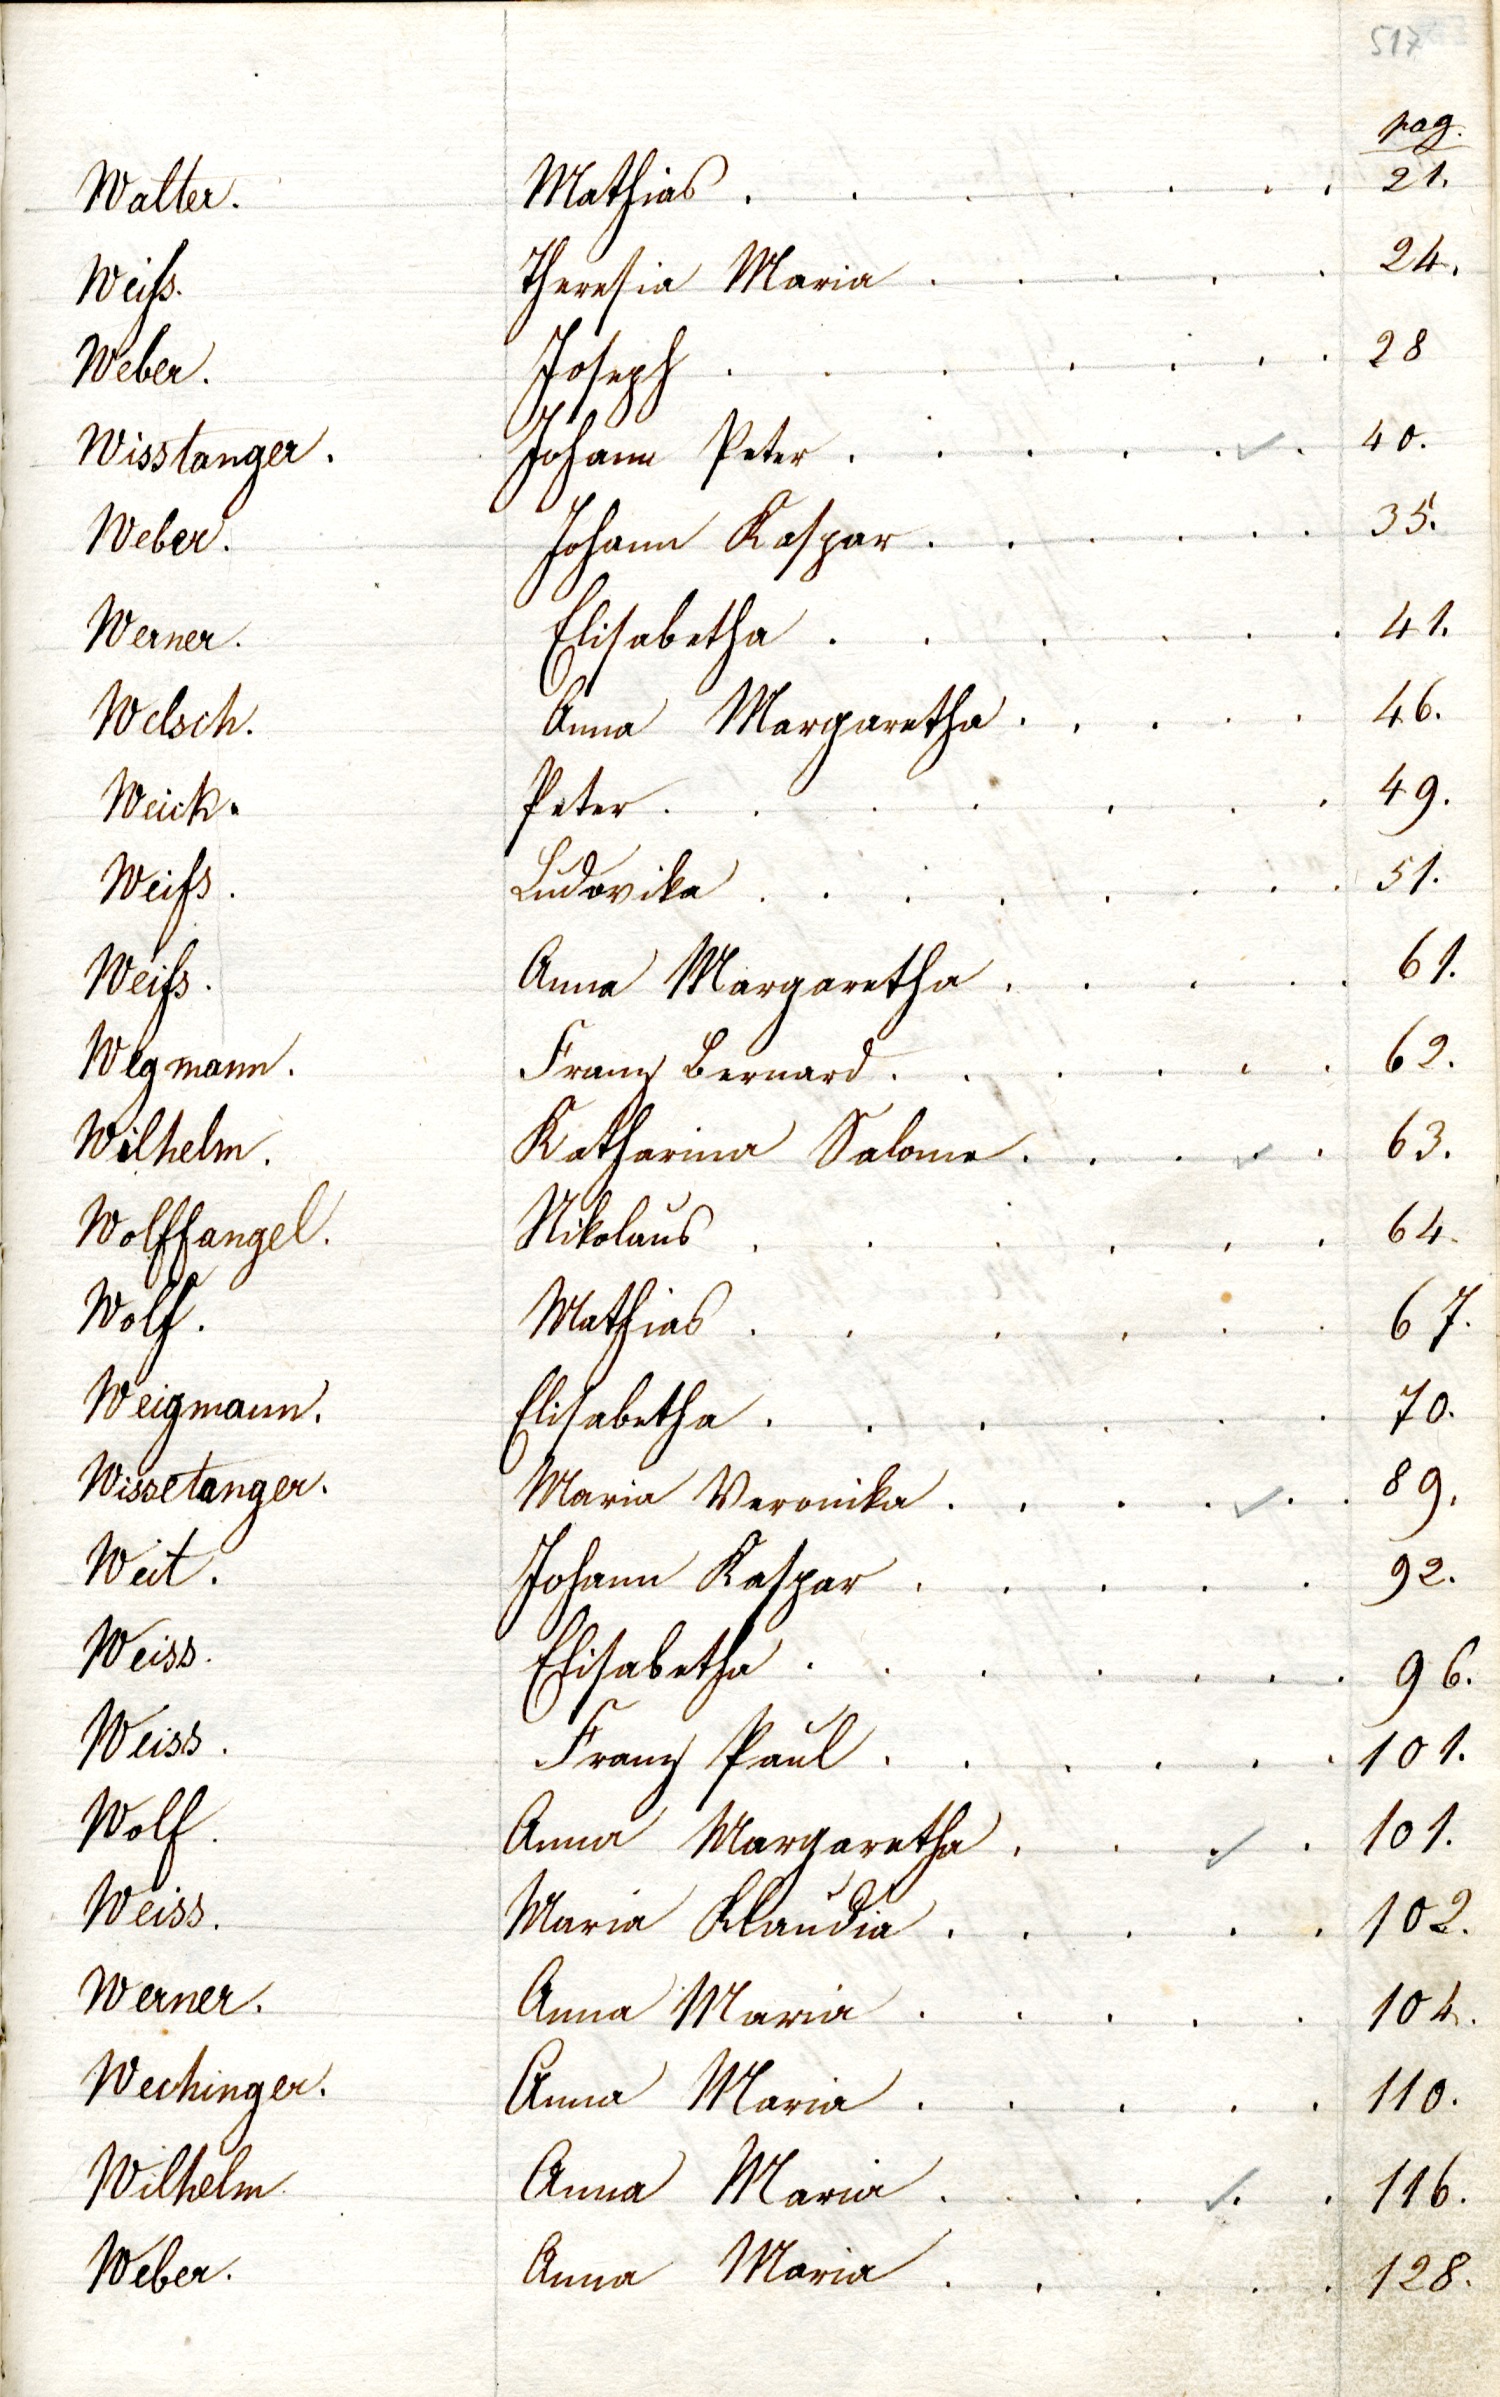 517
pag.
Walter. Mathias . . . . . . . 21.
Weiß. Theresia Maria . . . . . 24.
Weber. Joseph . . . . . . 28
Wisstanger. Johann Peter . . . . . . 40.
Weber. Johann Kaspar . . . . . . 35.
Werner. Elisabetha . . . . . . 41.
Welsch. Anna Margaretha . . . . . 46.
Weick. Peter . . . . . . . 49.
Weiß. Ludovika . . . . . . . . 51.
Weiß. Anna Margaretha . . . . . 61.
Wegmann. Franz Bernard . . . . . . 62.
Wilhelm. Katharina Salome . . . . . 63.
Wolffangel. Nikolaus . . . . . . 64.
Wolf. Mathias . . . . . . 67.
Weigmann. Elisabetha . . . . . . 70.
Wissetanger. Maria Veronika . . . . . . 89.
Weit. Johann Kaspar . . . . . 92.
Weiss. Elisabetha . . . . . . . 96.
Weiss. Franz Paul . . . . . . 101.
Wolf. Anna Margaretha . . . . 101.
Weiss. Maria Klaudia . . . . . 102.
Werner. Anna Maria . . . . . 104.
Wechinger. Anna Maria . . . . . 110.
Wilhelm Anna Maria . . . . . . 116.
Weber. Anna Maria . . . . . 128.